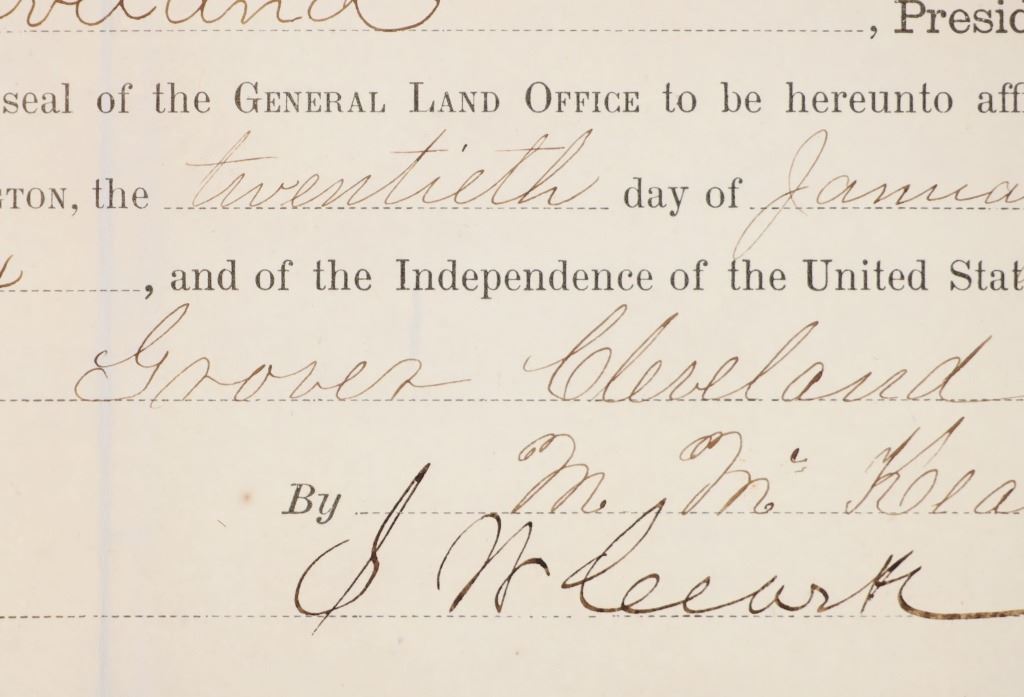 , Presid
seal of the GENERAL LAND OFFICE to be hereunto affi
GTON, the twentieth day of Janua
, and of the Independence of the United Stat
Grover Cleveland
By M. Mc Kea